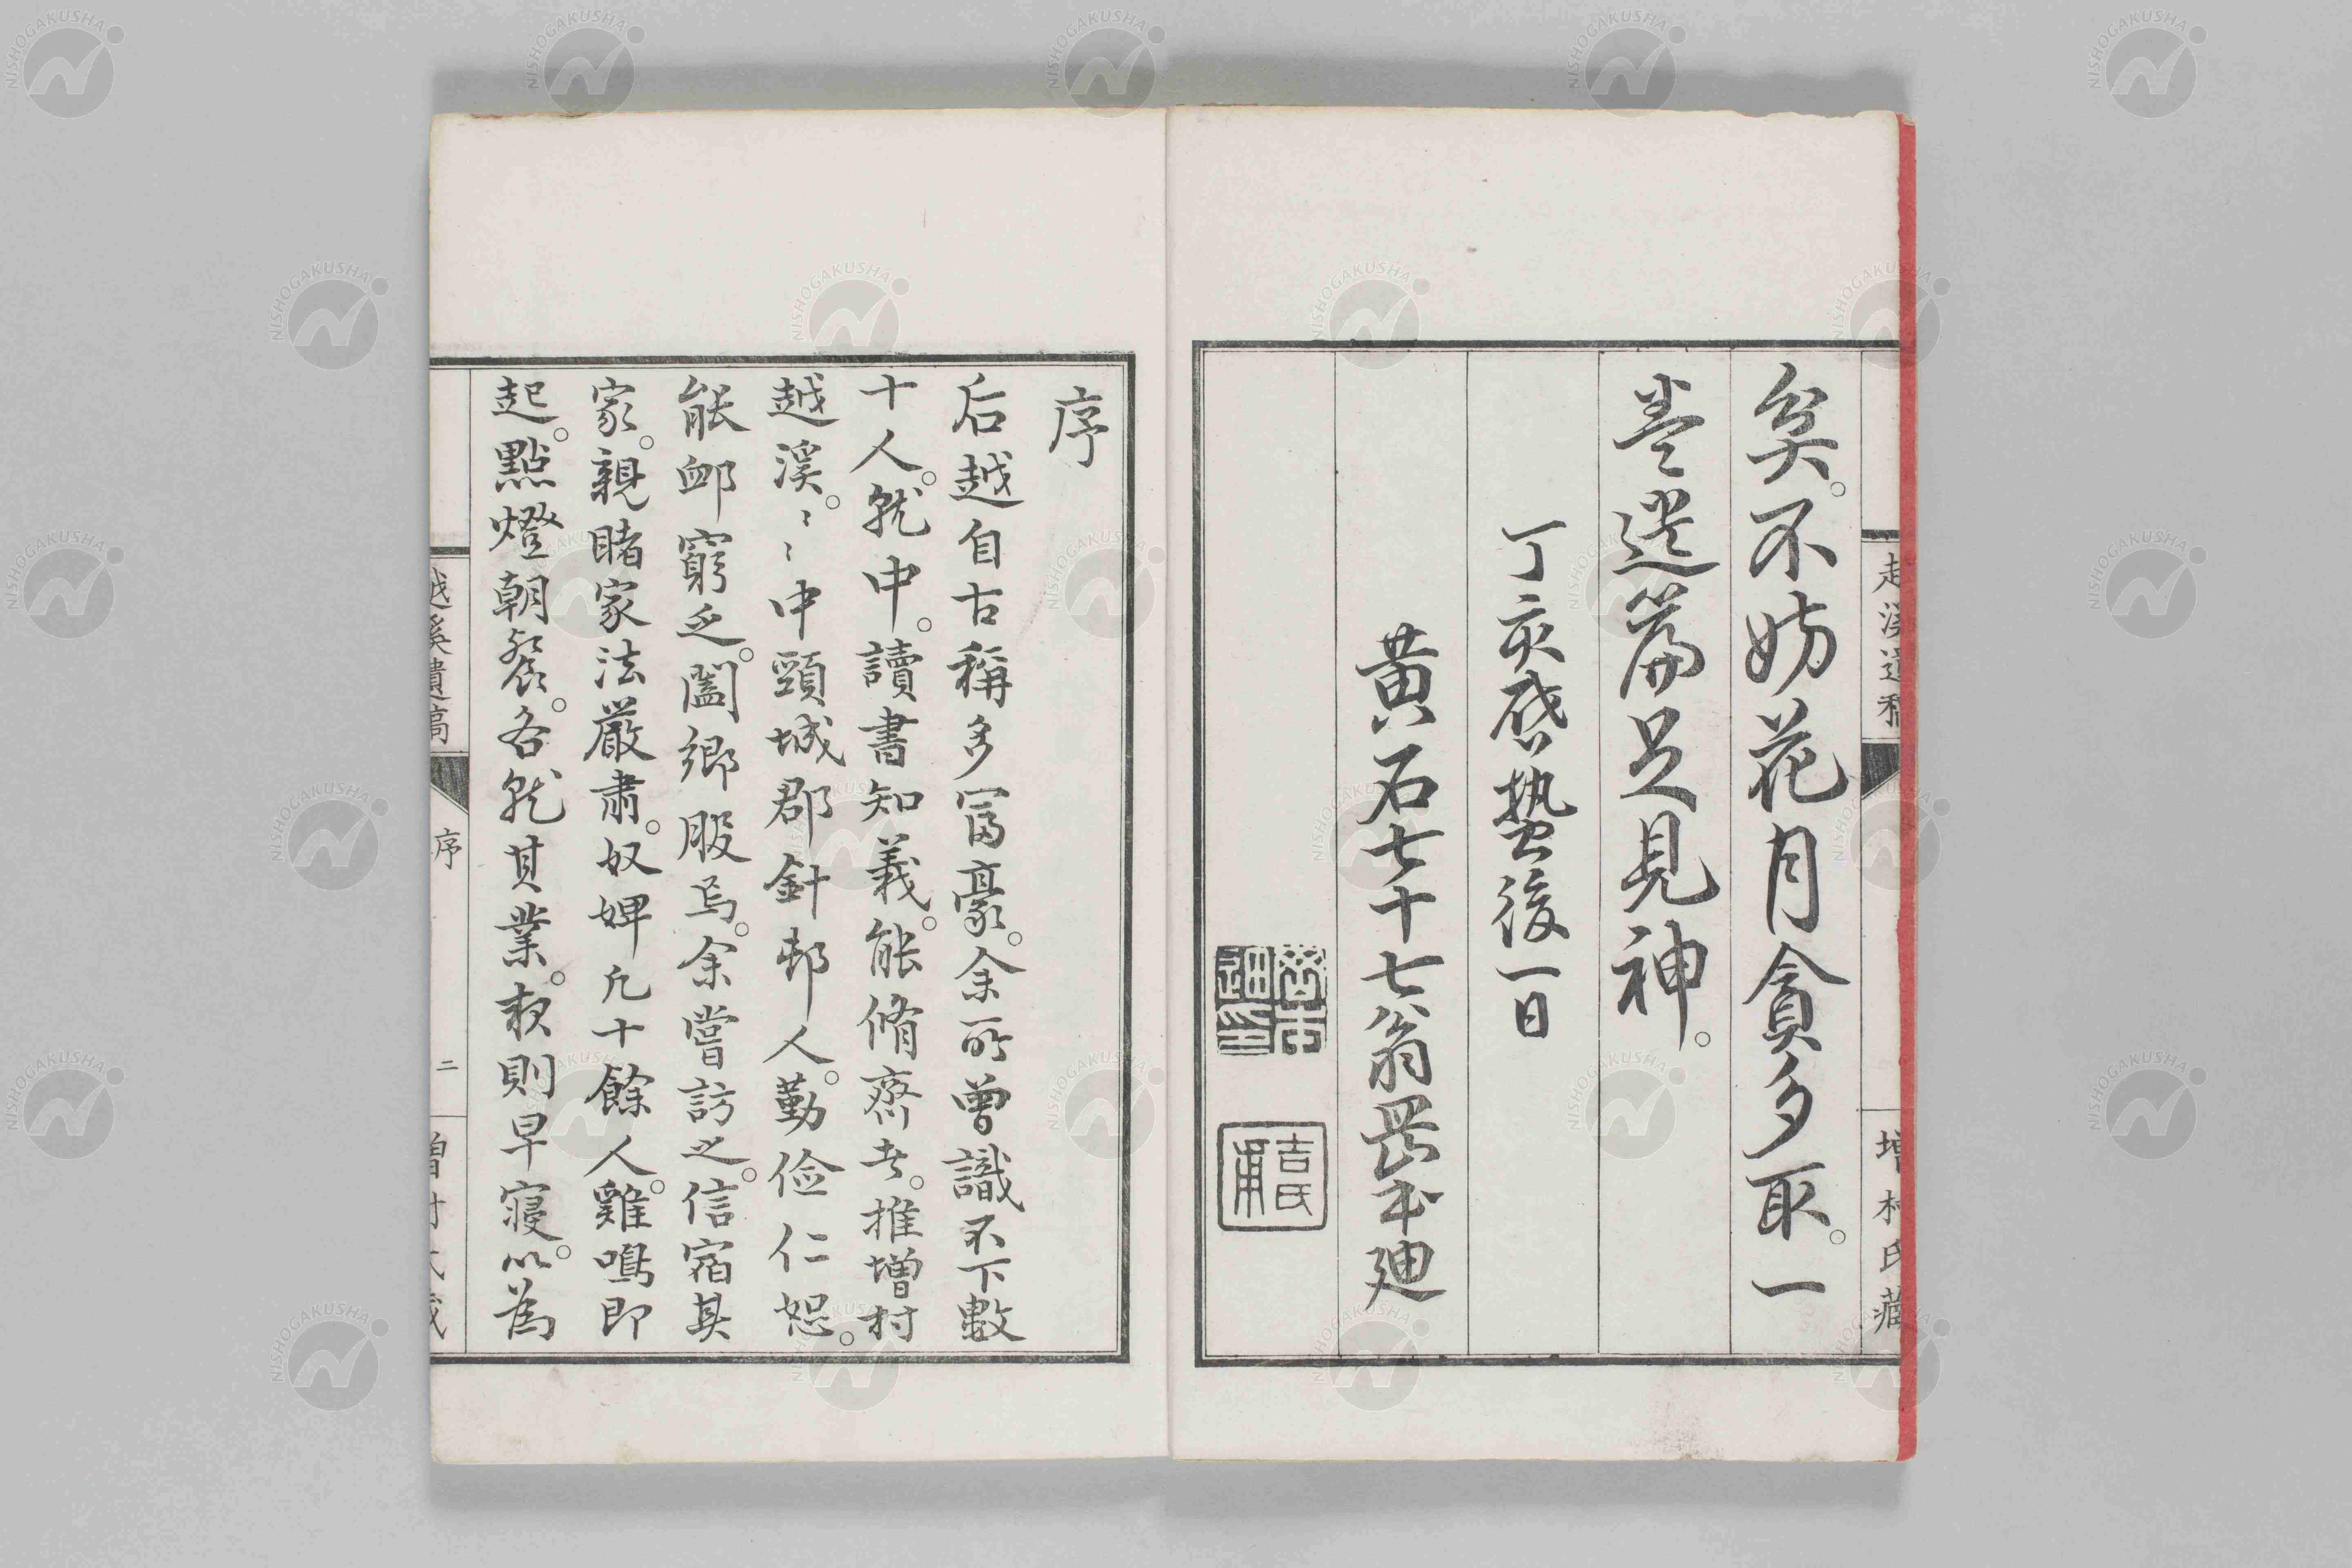 矣。不妨花月貪多取。一
巻遺篇足見神。
丁亥啓蟄後一日
黄石七十七翁岡本迪
吉氏
越溪遺稿
増村氏藏
序
后越自古稱多冨豪。余所曽識不下數
十人。就中。讀書知義。能脩齊者。推増村
越溪。〻〻中頸城郡針邨人。勤儉仁恕。
能卹窮乏。闔郷服焉。余嘗訪之。信宿其
家。親睹家法厳肅。奴婢凡十餘人。雞鳴即
起。點燈朝餐。各就其業。夜則早寝。以為
越溪遺稿
序
二
増村氏藏
NISHOGAKUSHA